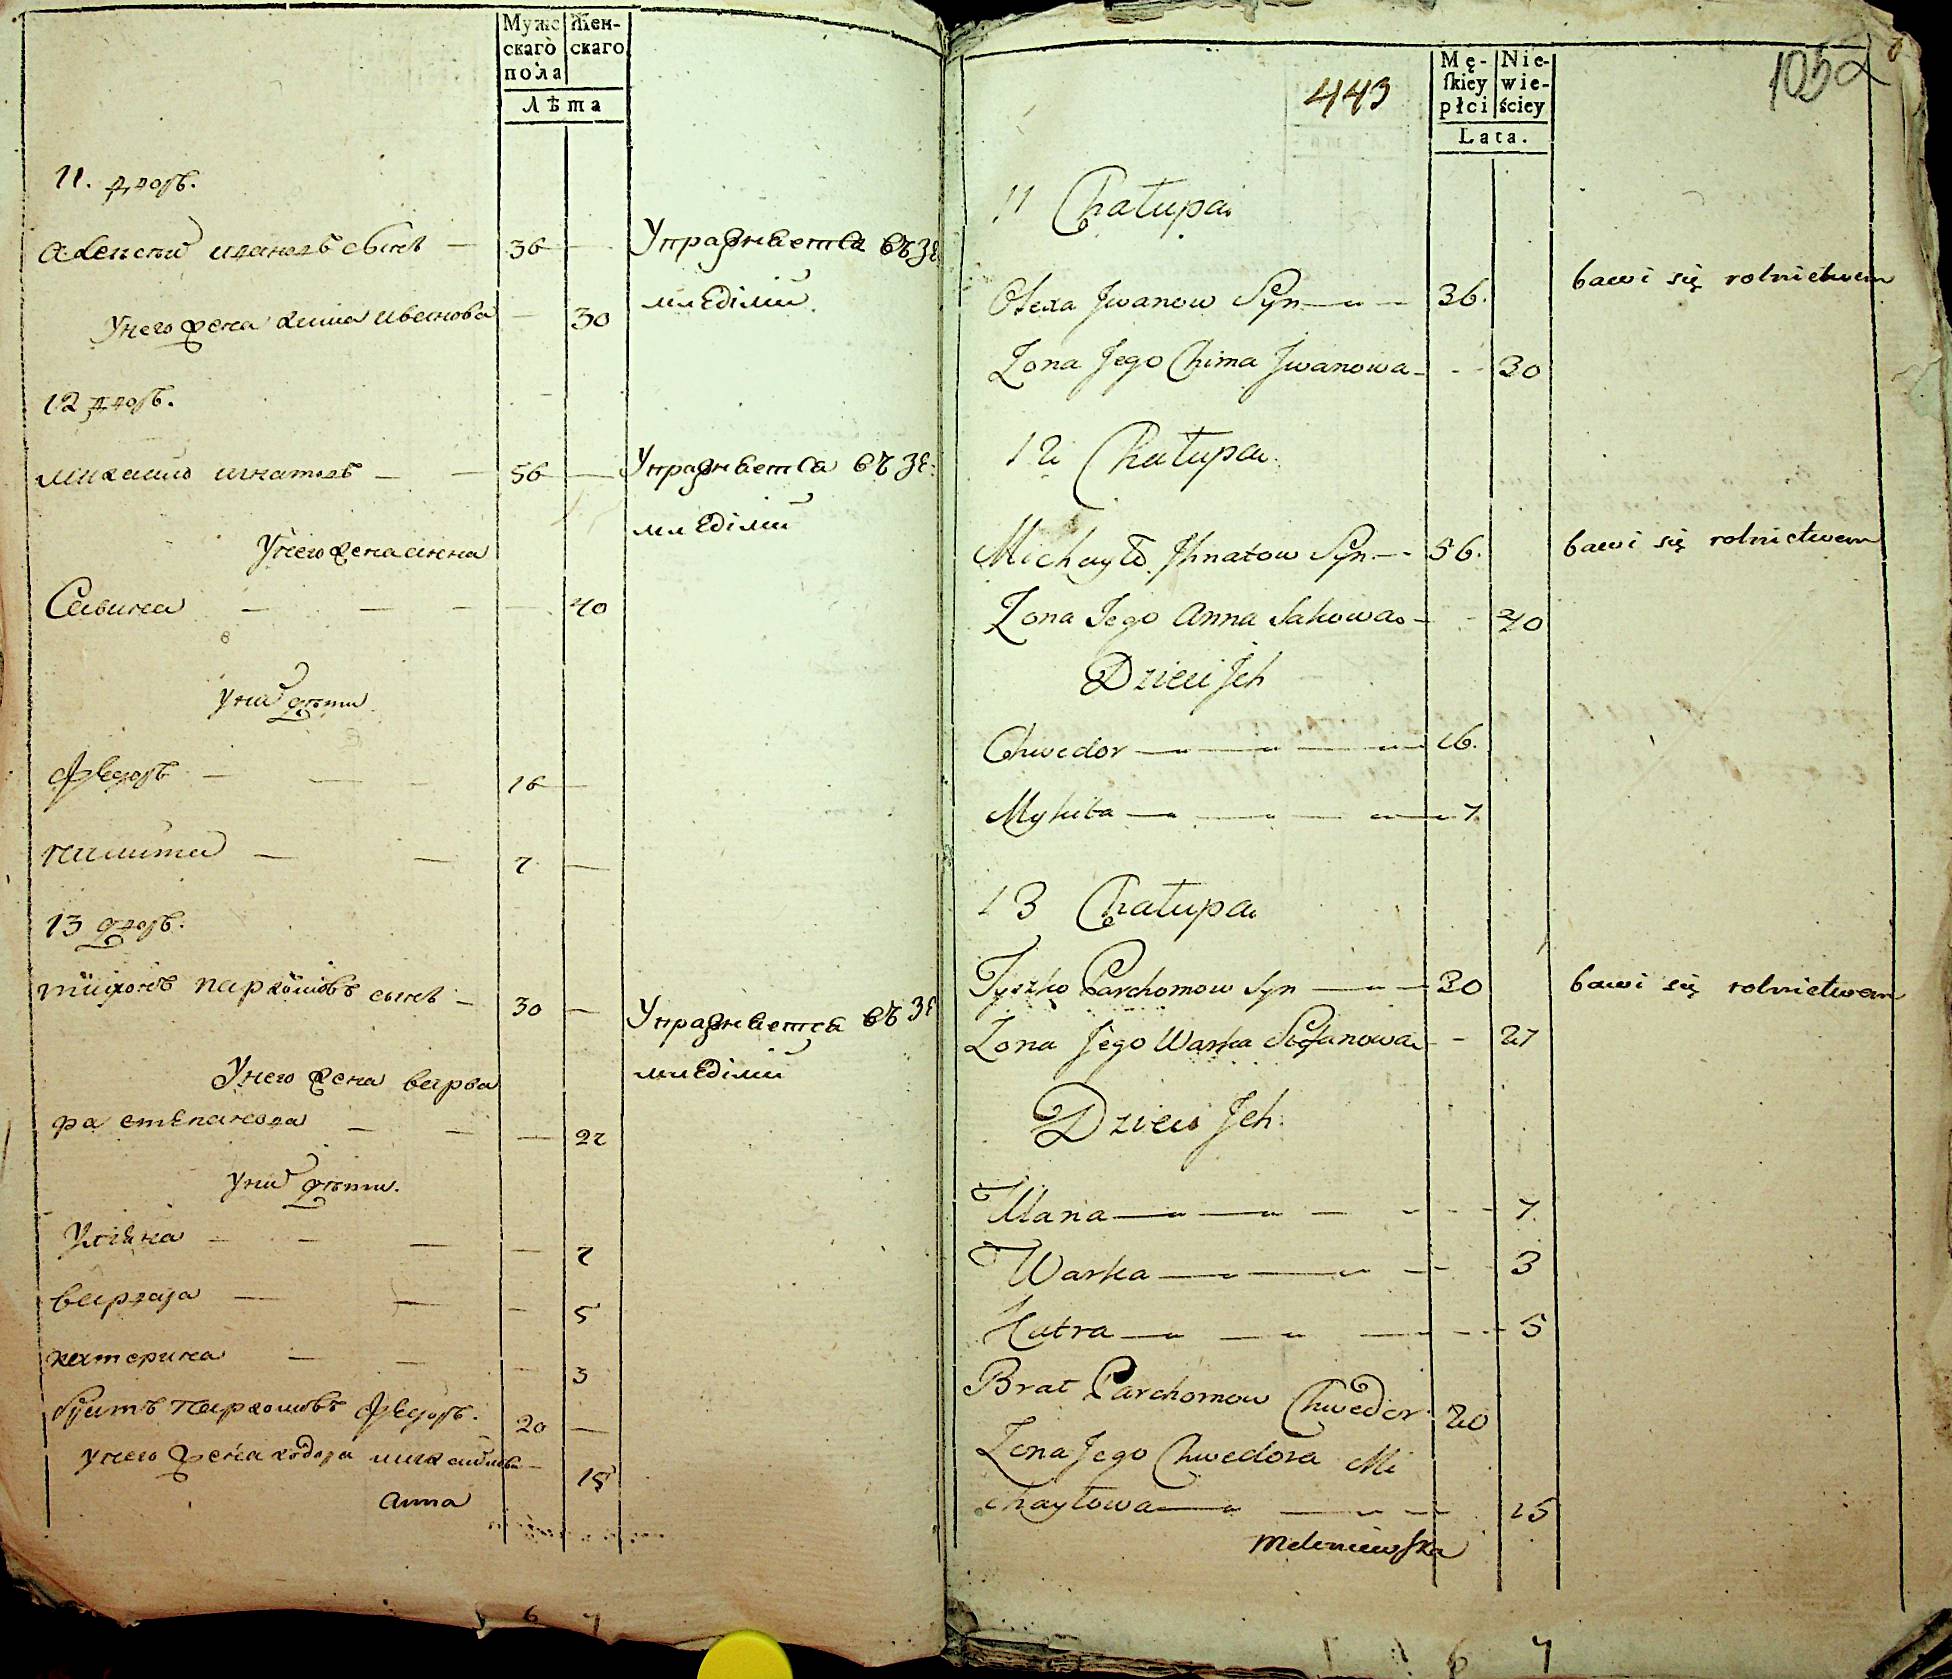 Мужс
скаго
пола
Жен-
скаго
Лѣта
11. дворъ.
Алексѣй Ивановъ сынъ — 36 —
Унего жена Химa Иванова — 30
Упражняется въ зе
мледѣлии
12 дворъ.
Михайло Игнатовъ — — 56 —
Упражняется въ зе:
мледѣлии
Унего жена Анна
Савина — — — 40
Унихъ дѣти
Федоръ — — — 16 —
Никита — — 7 —
13 дворъ.
Тихонъ Пархомовъ сынъ — 30 —
Упражняется въ зе
мледѣлии
Унего жена Варва
ра Степанова — — — 27
Унихъ дѣти.
Уляна — — — — 7
Варвара — — — 5
Катерина — — — 3
братъ Пархомовъ Федоръ. 20 —
Унего жена Хведора Михайлова — 15
Анна
6 7
443
Mę-
skiey
płci
Nie-
wie-
ściey
Lata.
105
11 Chałupa
Olexa Jwanow Syn — — 36.
bawi się rolnictwem
Zona Jego Chima Jwanowa - - - 30
12 Chałupa.
Michayło Jhnatow Syn — - 56.
bawi się rolnictwem
Zona Jego Anna Sakowa - - 40
Dzieci Jch
Chwedor — — — 16.
Mykita — — — — 7
13 Chałupa
Tyszko Parchomow Syn — — 30
bawi się rolnictwem
Zona Jego Warka Stefanowa - - 27
Dzieci Jch.
Ulana — — — - - - 7.
Warka — — — - - 3
Katra — — — - - 5
Brat Parchomow Chwedor 20
Zona Jego Chwedora Mi
chayłowa — — — 15
Meleniewska
6 7